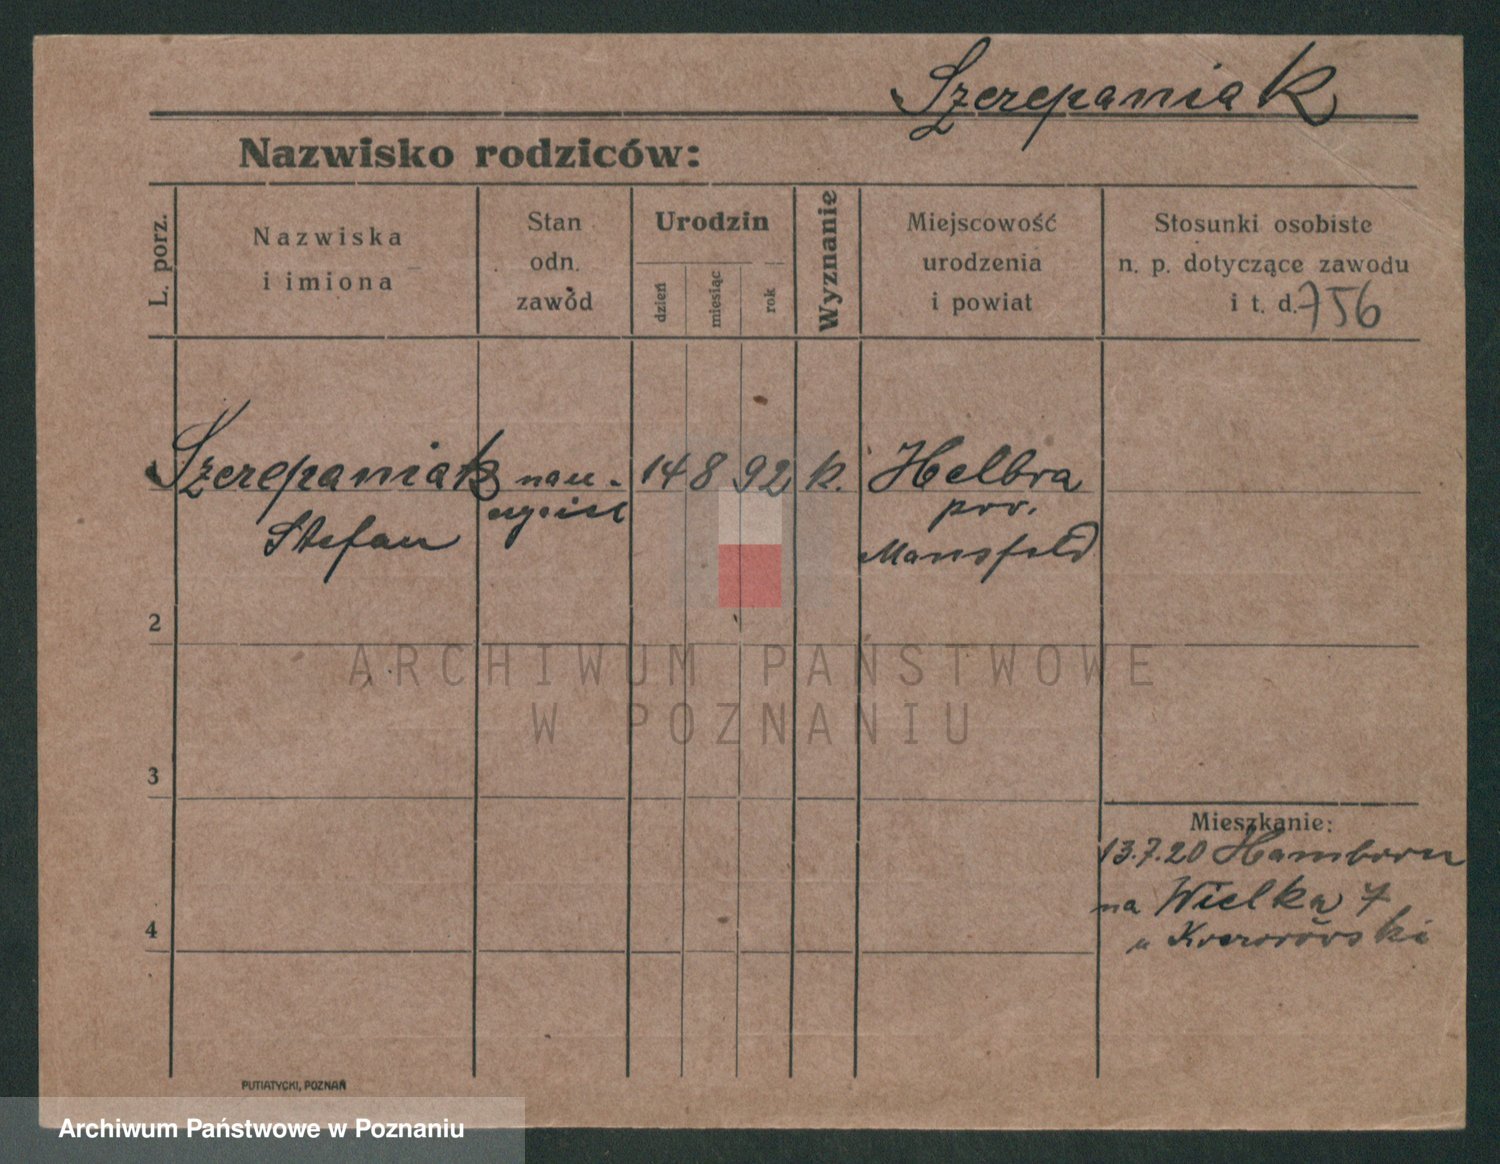 Szczepaniak
Nazwisko rodziców:
L. porz.
Nazwiska
i imiona
Stan
odn.
zawód
Urodzin
dzień
miesiąc
rok
Wyznanie
Miejscowość
urodzenia
i powiat
Stosunki osobiste
n. p. dotyczące zawodu
i t. d. 756
Szczepaniak nau- 14 8 92 k. Helbra
czyciel
pow.
Stefan
Mansfeld
2
ARCHIWUM PAŃSTWOWE
W POZNANIU
3
Mieszkanie:
13.7.20 Hamborn
na Wielka 7
u
4
PUTIATYCKI, POZNAŃ
Archiwum Państwowe w Poznaniu